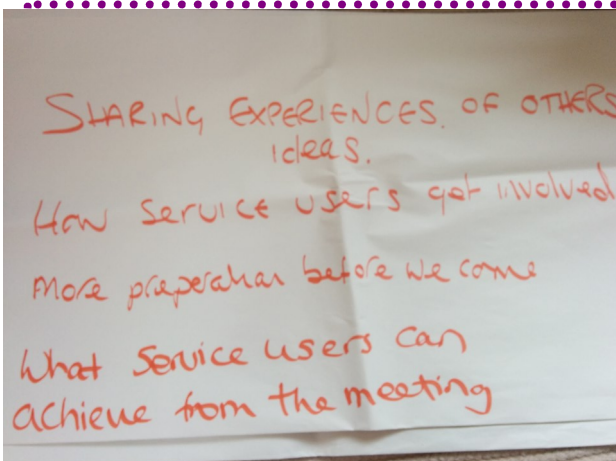 SHARING EXPERIENCES. OF OTHERS
ideas.
How Service users get involved
More preperation before we come
What Service users can
achieve from the meeting